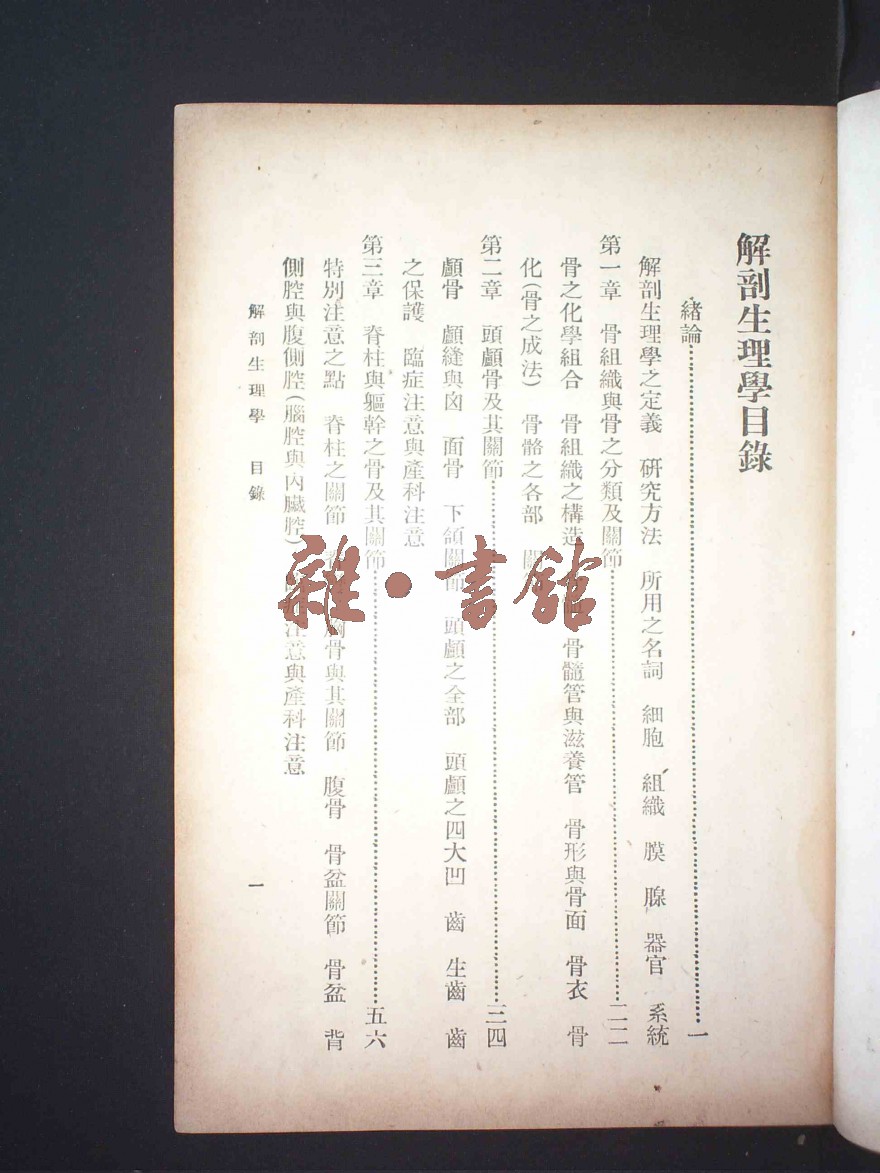 解剖生理學目錄
緒論……一
解剖生理學之定義 研究方法 所用之名詞 細胞 組織 膜 腺 器官 系統
第一章 骨組織與骨之分類及關節……二二
骨之化學組合 骨組織之構造 骨髓管與滋養管 骨形與骨面 骨衣 骨
化(骨之成法) 骨骼之各部
第二章 頭顱骨及其關節……三四
顱骨 顱縫與囟 面骨 下頜關節 頭顱之全部 頭顱之四大凹 齒 生齒 齒
之保護 臨症注意與產科注意
第三章 脊柱與軀幹之骨及其關節……五六
特別注意之點 脊柱之關節 骨與其關節 腹骨 骨盆關節 骨盆 背
側腔與腹側腔(腦腔與內臟腔) 注意與產科注意
解剖生理學 目錄 一
雜·書館